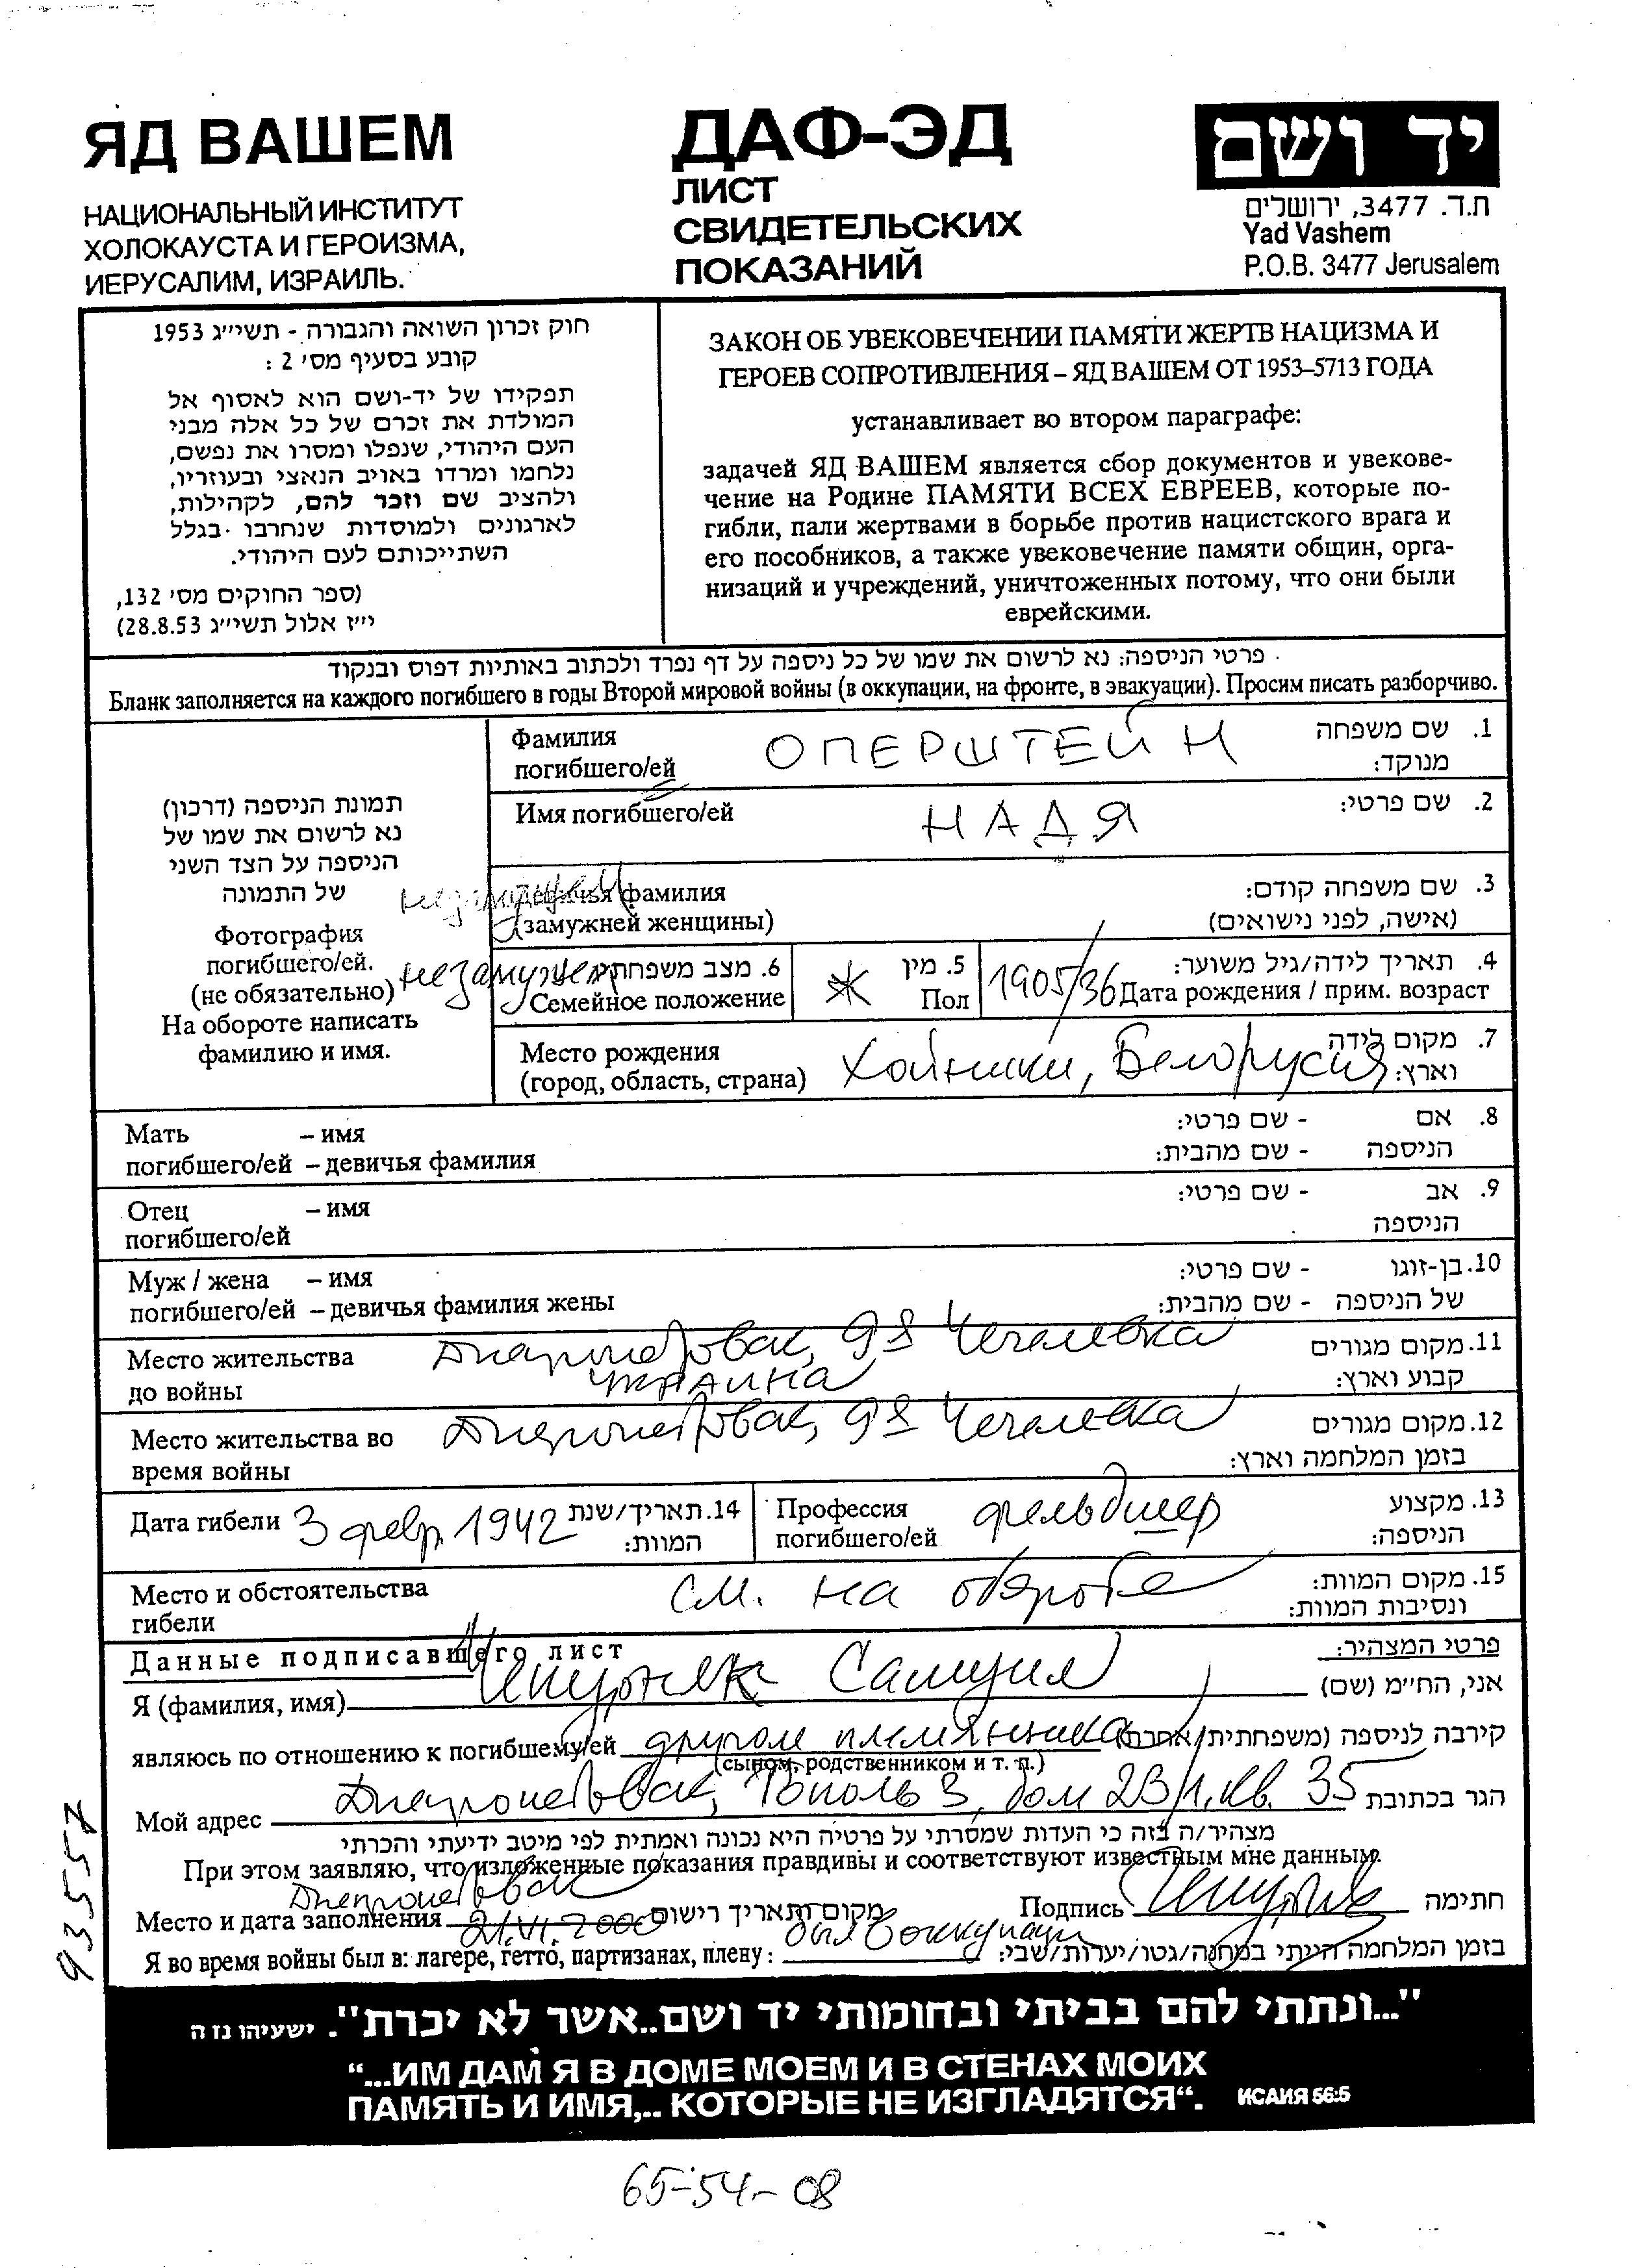 ЯД ВАШЕМ
НАЦИОНАЛЬНЫЙ ИНСТИТУТ
ХОЛОКАУСТА И ГЕРОИЗМА,
ИЕРУСАЛИМ, ИЗРАИЛЬ.
ДАФ-ЭД
ЛИСТ
СВИДЕТЕЛЬСКИХ
ПОКАЗАНИЙ
יד ושם
ת.ד. 3477, ירושלים
Yad Vashem
P.O.B. 3477 Jerusalem
חוק זכרון השואה והגבורה - תשי״ג 1953
קובע בסעיף מס׳ 2 :
תפקידו של יד-ושם הוא לאסוף אל
המולדת את זכרם של כל אלה מבני
העם היהודי, שנפלו ומסרו את נפשם,
נלחמו ומרדו באויב הנאצי ובעוזריו,
ולהציב שם וזכר להם, לקהילות,
לארגונים ולמוסדות שנחרבו בגלל
השתייכותם לעם היהודי.
(ספר החוקים מס׳ 132,
י״ז אלול תשי״ג 28.8.53)
ЗАКОН ОБ УВЕКОВЕЧЕНИИ ПАМЯТИ ЖЕРТВ НАЦИЗМА И
ГЕРОЕВ СОПРОТИВЛЕНИЯ – ЯД ВАШЕМ ОТ 1953–5713 ГОДА
устанавливает во втором параграфе:
задачей ЯД ВАШЕМ является сбор документов и увекове-
чение на Родине ПАМЯТИ ВСЕХ ЕВРЕЕВ, которые по-
гибли, пали жертвами в борьбе против нацистского врага и
его пособников, а также увековечение памяти общин, орга-
низаций и учреждений, уничтоженных потому, что они были
еврейскими.
פרטי הניספה: נא לרשום את שמו של כל ניספה על דף נפרד ולכתוב באותיות דפוס ובנקוד
Бланк заполняется на каждого погибшего в годы Второй мировой войны (в оккупации, на фронте, в эвакуации). Просим писать разборчиво.
תמונת הניספה (דרכון)
נא לרשום את שמו של
הניספה על הצד השני
של התמונה
Фотография
погибшего/ей.
(не обязательно)
На обороте написать
фамилию и имя.
Фамилия
погибшего/ей ОПЕРШТЕЙН
1. שם משפחה
מנוקד:
Имя погибшего/ей НАДЯ 2. שם פרטי:
незамужем
девичья фамилия
(замужней женщины)
3. שם משפחה קודם:
(אישה, לפני נישואים)
незамужем 6. מצב משפחתי
Семейное положение
Ж 5. מין
Пол
1905/36 4. תאריך לידה/גיל משוער:
Дата рождения / прим. возраст
Место рождения
(город, область, страна) Хойники, Белорусия
7. מקום לידה
וארץ:
Мать – имя
погибшего/ей – девичья фамилия
8. אם - שם פרטי:
הניספה - שם מהבית:
Отец – имя
погибшего/ей
9. אב - שם פרטי:
הניספה
Муж / жена – имя
погибшего/ей – девичья фамилия жены
10. בן-זוגו - שם פרטי:
של הניספה - שם מהבית:
Место жительства
до войны
Днепропетровск, 98 Чечелевка
УКРАИНА
11. מקום מגורים
קבוע וארץ:
Место жительства во
время войны
Днепропетровск, 98 Чечелевка
12. מקום מגורים
בזמן המלחמה וארץ:
Дата гибели 3 февр. 1942 14. תאריך/שנת
המוות:
Профессия
погибшего/ей фельдшер
13. מקצוע
הניספה:
Место и обстоятельства
гибели
см. на обороте
15. מקום המוות:
ונסיבות המוות:
Данные подписавшего лист
פרטי המצהיר:
Я (фамилия, имя) Самуил אני, הח״מ (שם)
являюсь по отношению к погибшему/ей другом племянника קירבה לניספה (משפחתית/אחרת)
(сыном, родственником и т. п.)
Мой адрес Днепропетровск, Тополь 3, дом 23/1, кв. 35 הגר בכתובת
מצהיר/ה בזה כי העדות שמסרתי על פרטיה היא נכונה ואמתית לפי מיטב ידיעתי והכרתי
При этом заявляю, что изложенные показания правдивы и соответствуют известным мне данным.
Днепропетровск
Место и дата заполнения 21.VI.2000 מקום ותאריך רישום Подпись חתימה
Я во время войны был в: лагере, гетто, партизанах, плену: был в оккупации בזמן המלחמה הייתי במחנה/גטו/יערות/שבי:
93557
"...ונתתי להם בביתי ובחומותי יד ושם..אשר לא יכרת". ישעיהו נז ה
“...ИМ ДАМ Я В ДОМЕ МОЕМ И В СТЕНАХ МОИХ
ПАМЯТЬ И ИМЯ,.. КОТОРЫЕ НЕ ИЗГЛАДЯТСЯ“. ИСАИЯ 56:5
65-54-08